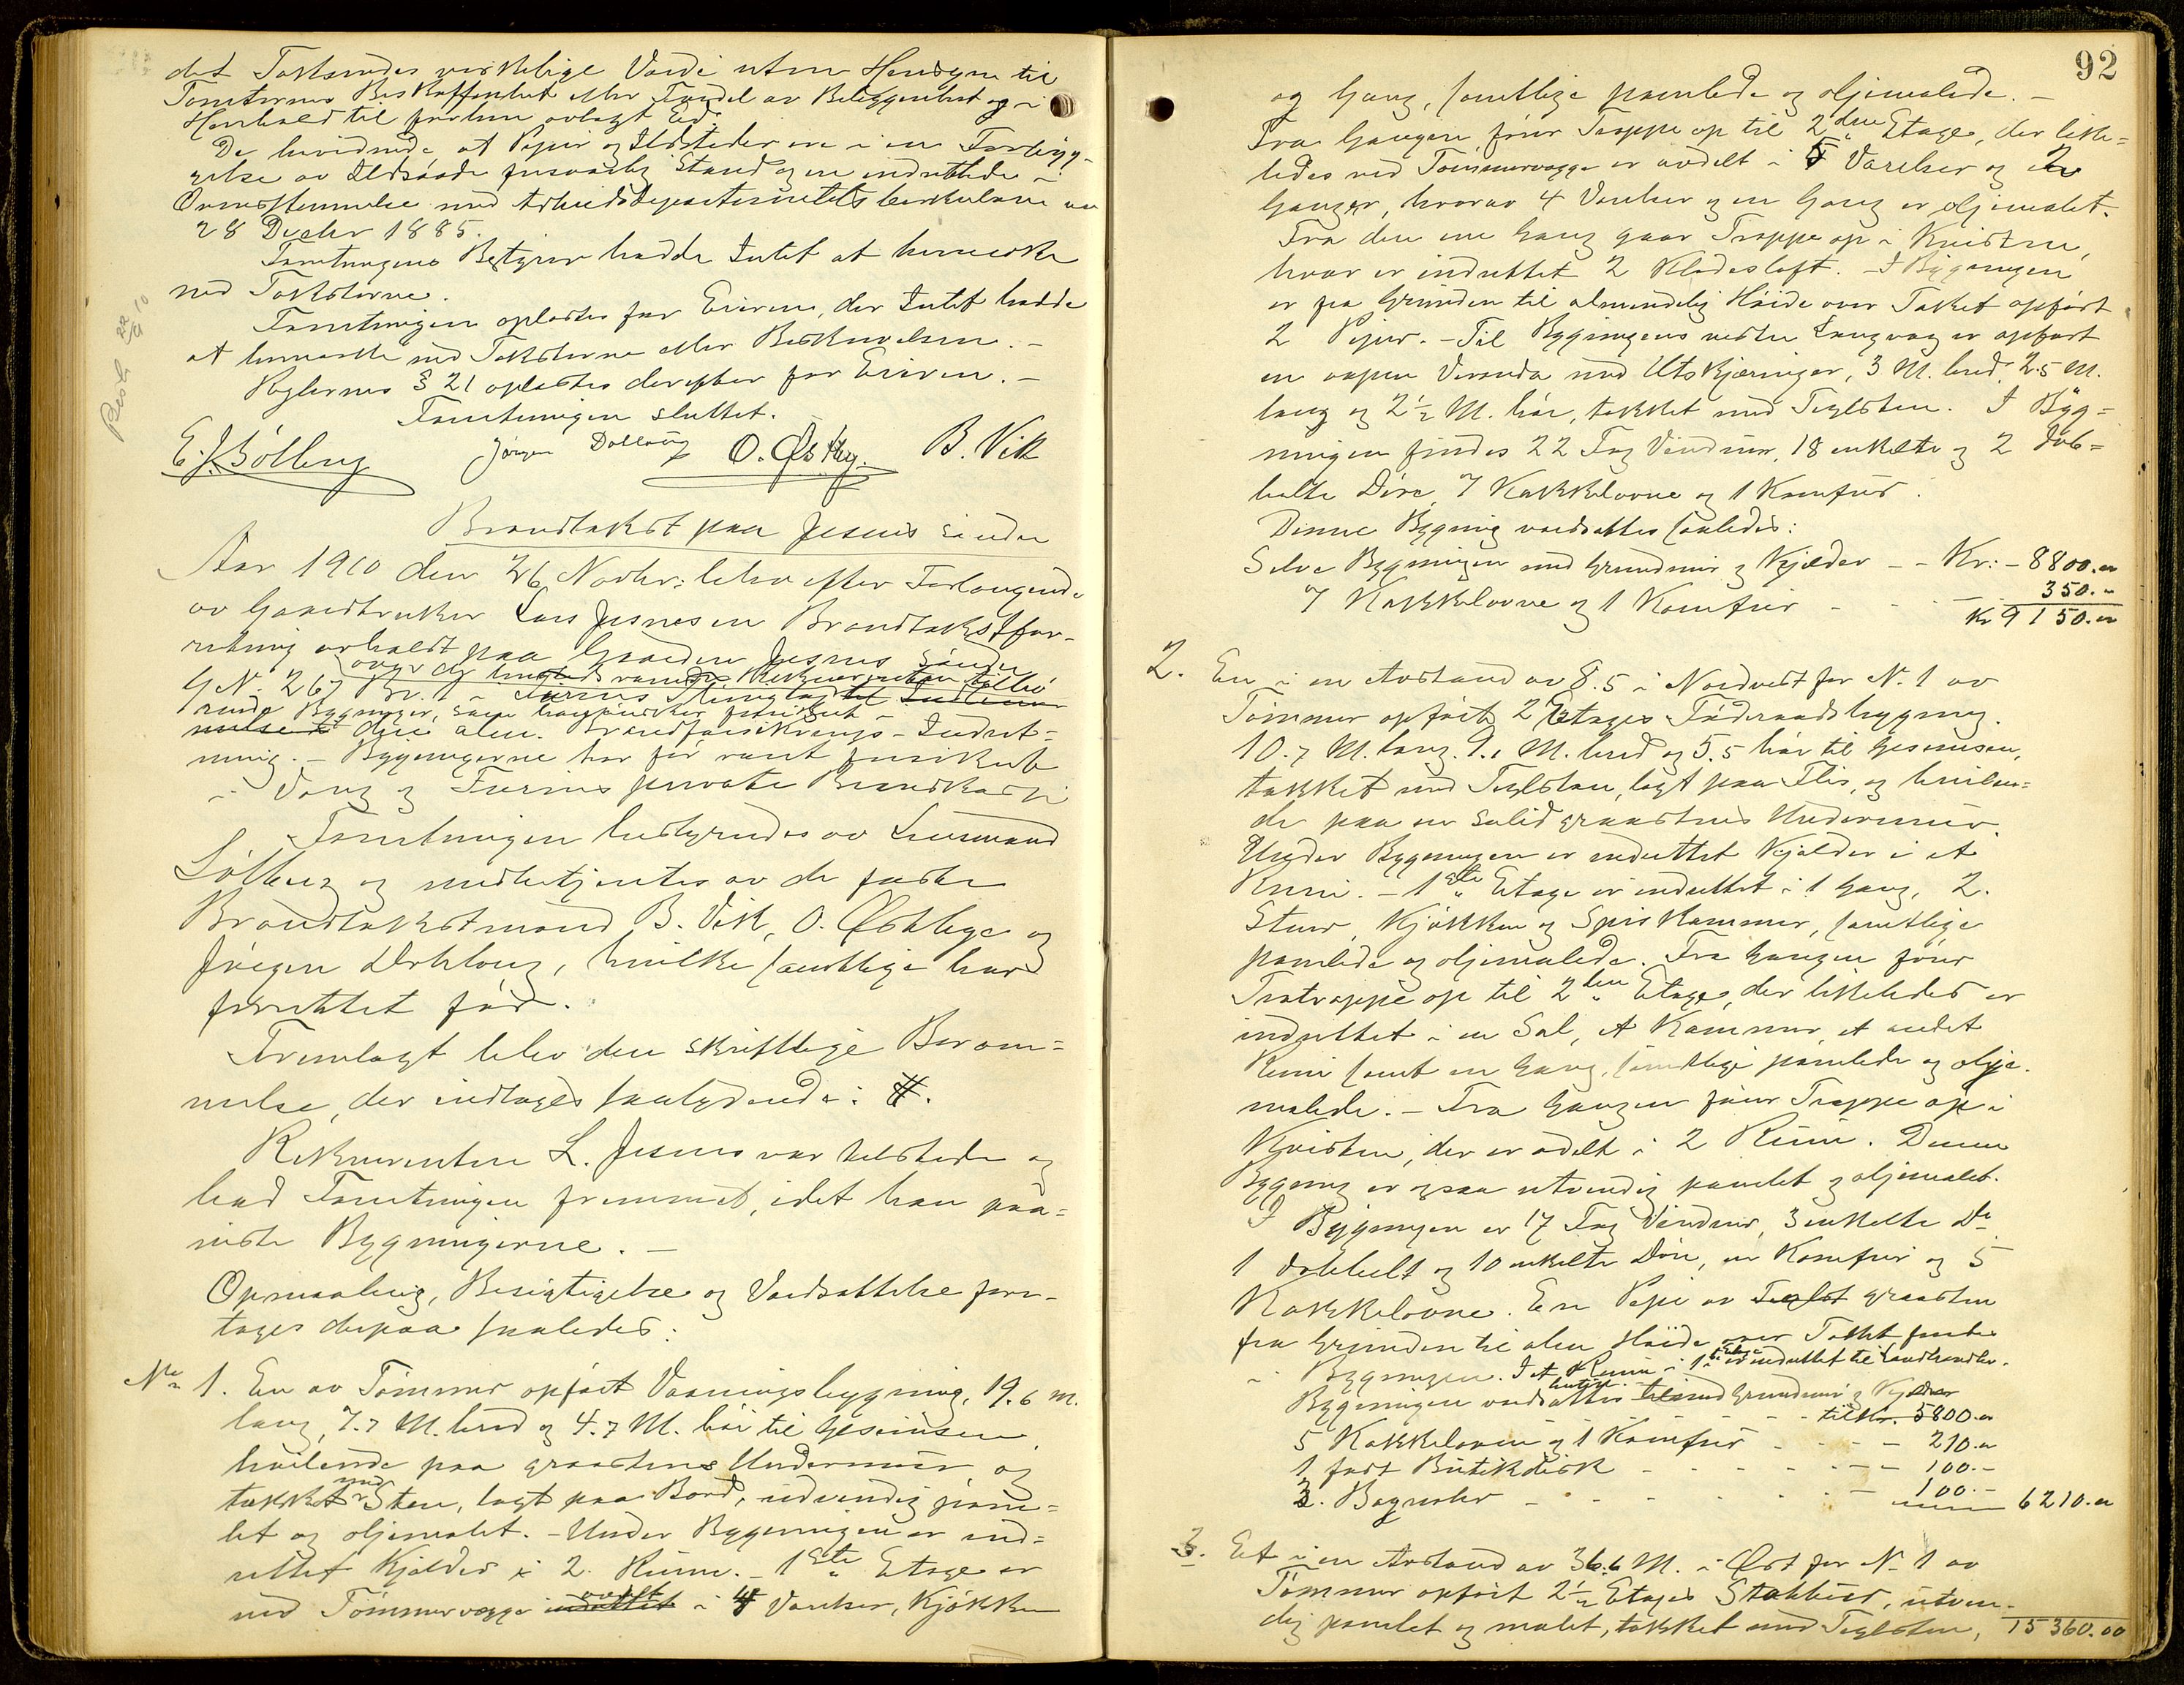 det Takseredes virkelige Værdi uten Hensyn til
Tomternes Beskaffenhet eller Fordel av Beliggenhet og i
Henhold til forhen avlagt Ed.
De bevidnede at Piper og Ildsteder ere i en Forebyg-
gelse av Ildsvaade forsvarlig Stand og ere indrettede i
Overensstemmelse med Arbeidsdepartementets Cirkulære av
28 Decbr 1885.
Forretningens Bestyrer hadde Intet at bemerke
ved Taksterne.
Forretningen oplæstes for Eieren, der Intet hadde
at bemerke ved Taksterne eller Beskrivelsen. –
Reglernes § 21 oplæstes derefter for Eieren. –
Forretningen sluttet.
E. J. Sölberg Jörgen Dællæng O. Østby. B. Vik
Besk 22/11 10
Brandtakst paa Jesnes søndre
Aar 1910 den 26 Novbr. blev efter Forlangende
av Gaardbruker Lars Jesnes en Brandtakstfor-
retning avholdt paa Gaarden Jesnes søndre
G No 267 Br. 1 i Furnes Thinglag til Indlem
over de hersteds værende Rekvirenten tilhö
rende Bygninger, som han önsker forsikret i
melse i den alm. Brandforsikrings-Indret=
ning. – Bygningerne har før været forsikrede
i Vang og Furnes private Brandkasse
Forretningen bestyredes av Lensmand
Sölberg og medbetjentes av de faste
Brandtakstmænd B. Vik, O. Østbye og
Jörgen Dæhleng, hvilke samtlige har
forrettet før.
Fremlagt blev den skriftlige Beram=
melse, der indtages saalydende: #.
Rekvirenten L. Jesnes var tilstede og
bad Forretningen fremmet, idet han paa=
viste Bygningerne. –
Opmaaling, Besigtigelse og Værdsættelse fore-
tages derpaa saaledes:
No 1. En av Tømmer opført Vaaningsbygning, 19.6 m.
lang, 7.7 M. bred og 4.7 M. høi til Gesimsen
hvilende paa graastens Undermur og
tækket med Sten, lagt paa Bord, udvendig pane=
let og oljemalet. – Under Bygningen er ind=
rettet Kjælder i 2. Rum. – 1ste Etage er
ved Tømmervægge indrettet avdelt i 4 Værelser, Kjøkken
92
og Gang, samtlige panelede og oljemalede. –
Fra Gangen fører Trappe op til 2den Etage, der like=
ledes ved Tømmervægge er avdelt i 5 Værelser og 2
Ganger, hvorav 4 Værelser og en Gang er oljemalet.
Fra den ene Gang gaar Trappe op i Kvisten,
hvor er indrettet 2 Klædesloft. – I Bygningen
er fra Grunden til almindelig Høide over Taket opført
2 Piper. – Til Bygningens vestre Langvæg er opført
en aapen Veranda med Utskjæringer, 3 M. bred, 2.5 M.
lang og 2 1/2 M. høi, tækket med Teglsten. I Byg=
ningen findes 22 Fag Vinduer, 18 enkelte og 2 dob=
belte Döre, 7 Kakkelovne og 1 Komfur.
Denne Bygning værdsættes saaledes:
Selve Bygningen med Grundmur og Kjælder – – Kr. – 8800.00
7 Kakkelovne og 1 Komfur – – – 350. "
Kr 9150.00
2. En i en Avstand av 8.5 i Nordvest for No 1 av
Tømmer opført 2 Etages Föderaadsbygning.
10.7 M. lang. 9.1 M. bred og 5.5 høi til Gesimsen,
tækket med Teglsten, lagt paa Flis, og hvilen=
de paa en solid graastens Undermur.
Under Bygningen er indrettet Kjælder i et
Rum. – 1ste Etage er indrettet i 1 Gang, 2.
Stuer, Kjøkken og Spiskammer, samtlige
panelede og oljemalede. Fra Gangen fører
Trætrappe op til 2den Etage, der likeledes er
indrettet i en Sal, et Kammer, et andet
Rum samt en Gang, samtlige panelede og olje-
malede. – Fra Gangen fører Trappe op i
Kvisten, der er avdelt i 2 Rum. Denne
Bygning er ogsaa utvendig panelet og oljemalet.
I Bygningen er 17 Fag Vinduer, 3 enkelte Do
1 dobbelt og 10 enkelte Döre, en Komfur og 5
Kakkelovne. En Pipe av Teglst graasten
fra Grunden til alm Høide over Taket findes
i Bygningen. I et Rum i 1ste Etage er indrettet til Landhandler.
Bygningen værdsættes hertil med Grundmur og Kjælder
til Kr. 5800.00
5 Kakkelovne og 1 Komfur – – – – 210.00
1 fast Butikdisk – – – – – – 100. –
2. Bagreoler – – – – – – 100. –
6210.00
3. Et i en Avstand av 36.6 M. i Øst for No 1 av
Tømmer opført 2 1/2 Etages Stabbur, utven-
dig panelet og malet, tækket med Teglsten, 15360.00